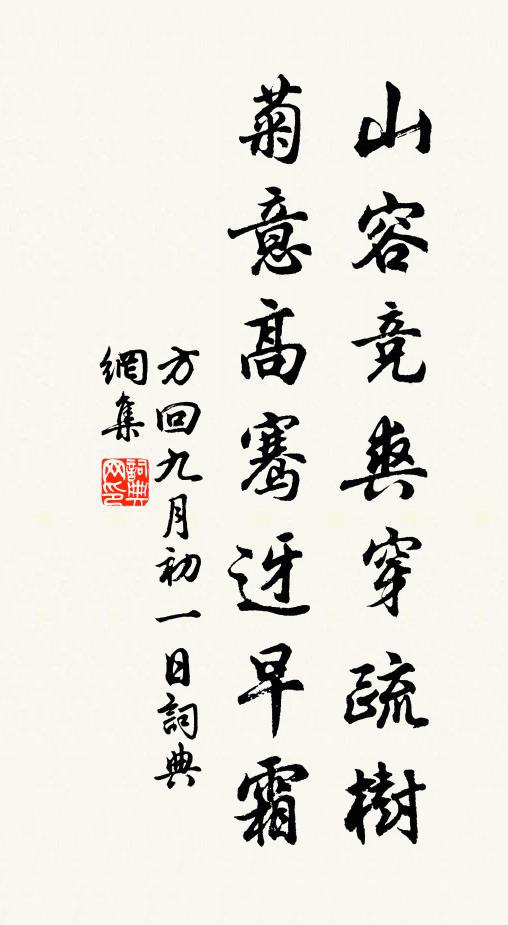 山容竞爽穿疏樹
菊意高骞迓早霜
方回九月初一日詞典
網集
詞典
网印